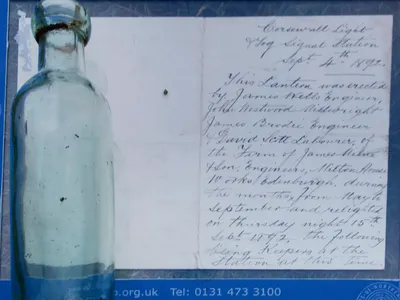 Corsewall Light
& Fog Signal Station
Sept 4th 1892
This Lantern was erected
by James Wells Engineer,
John Westwood Millwright
James Brodie Engineer
& David Scott Labourer, of
the Firm of James Milne
& Son Engineers, Milton House
Works, Edinburgh, during
the months from May to
September and relighted
on thursday night 15th
Sept 1892 the following
being Keepers at the
Station at this time
o.org.uk Tel: 0131 473 3100